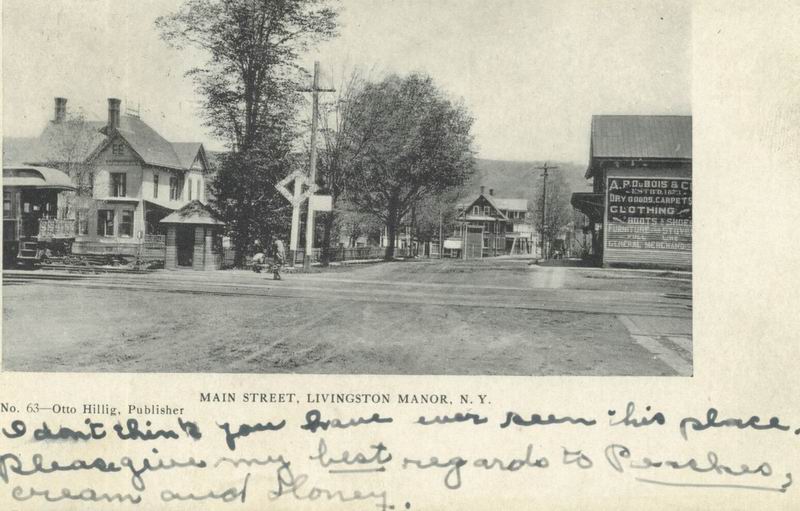 A. P. DuBOIS & CO
ESTB'D. 1873
DRY GOODS, CARPETS
CLOTHING
BOOTS & SHOES
FURNITURE STOVES
GENERAL MERCHANDISE
MAIN STREET, LIVINGSTON MANOR, N. Y.
No. 63—Otto Hillig, Publisher
I don't think you have ever seen this place.
Please give my best regards to Peaches,
cream and Honey.